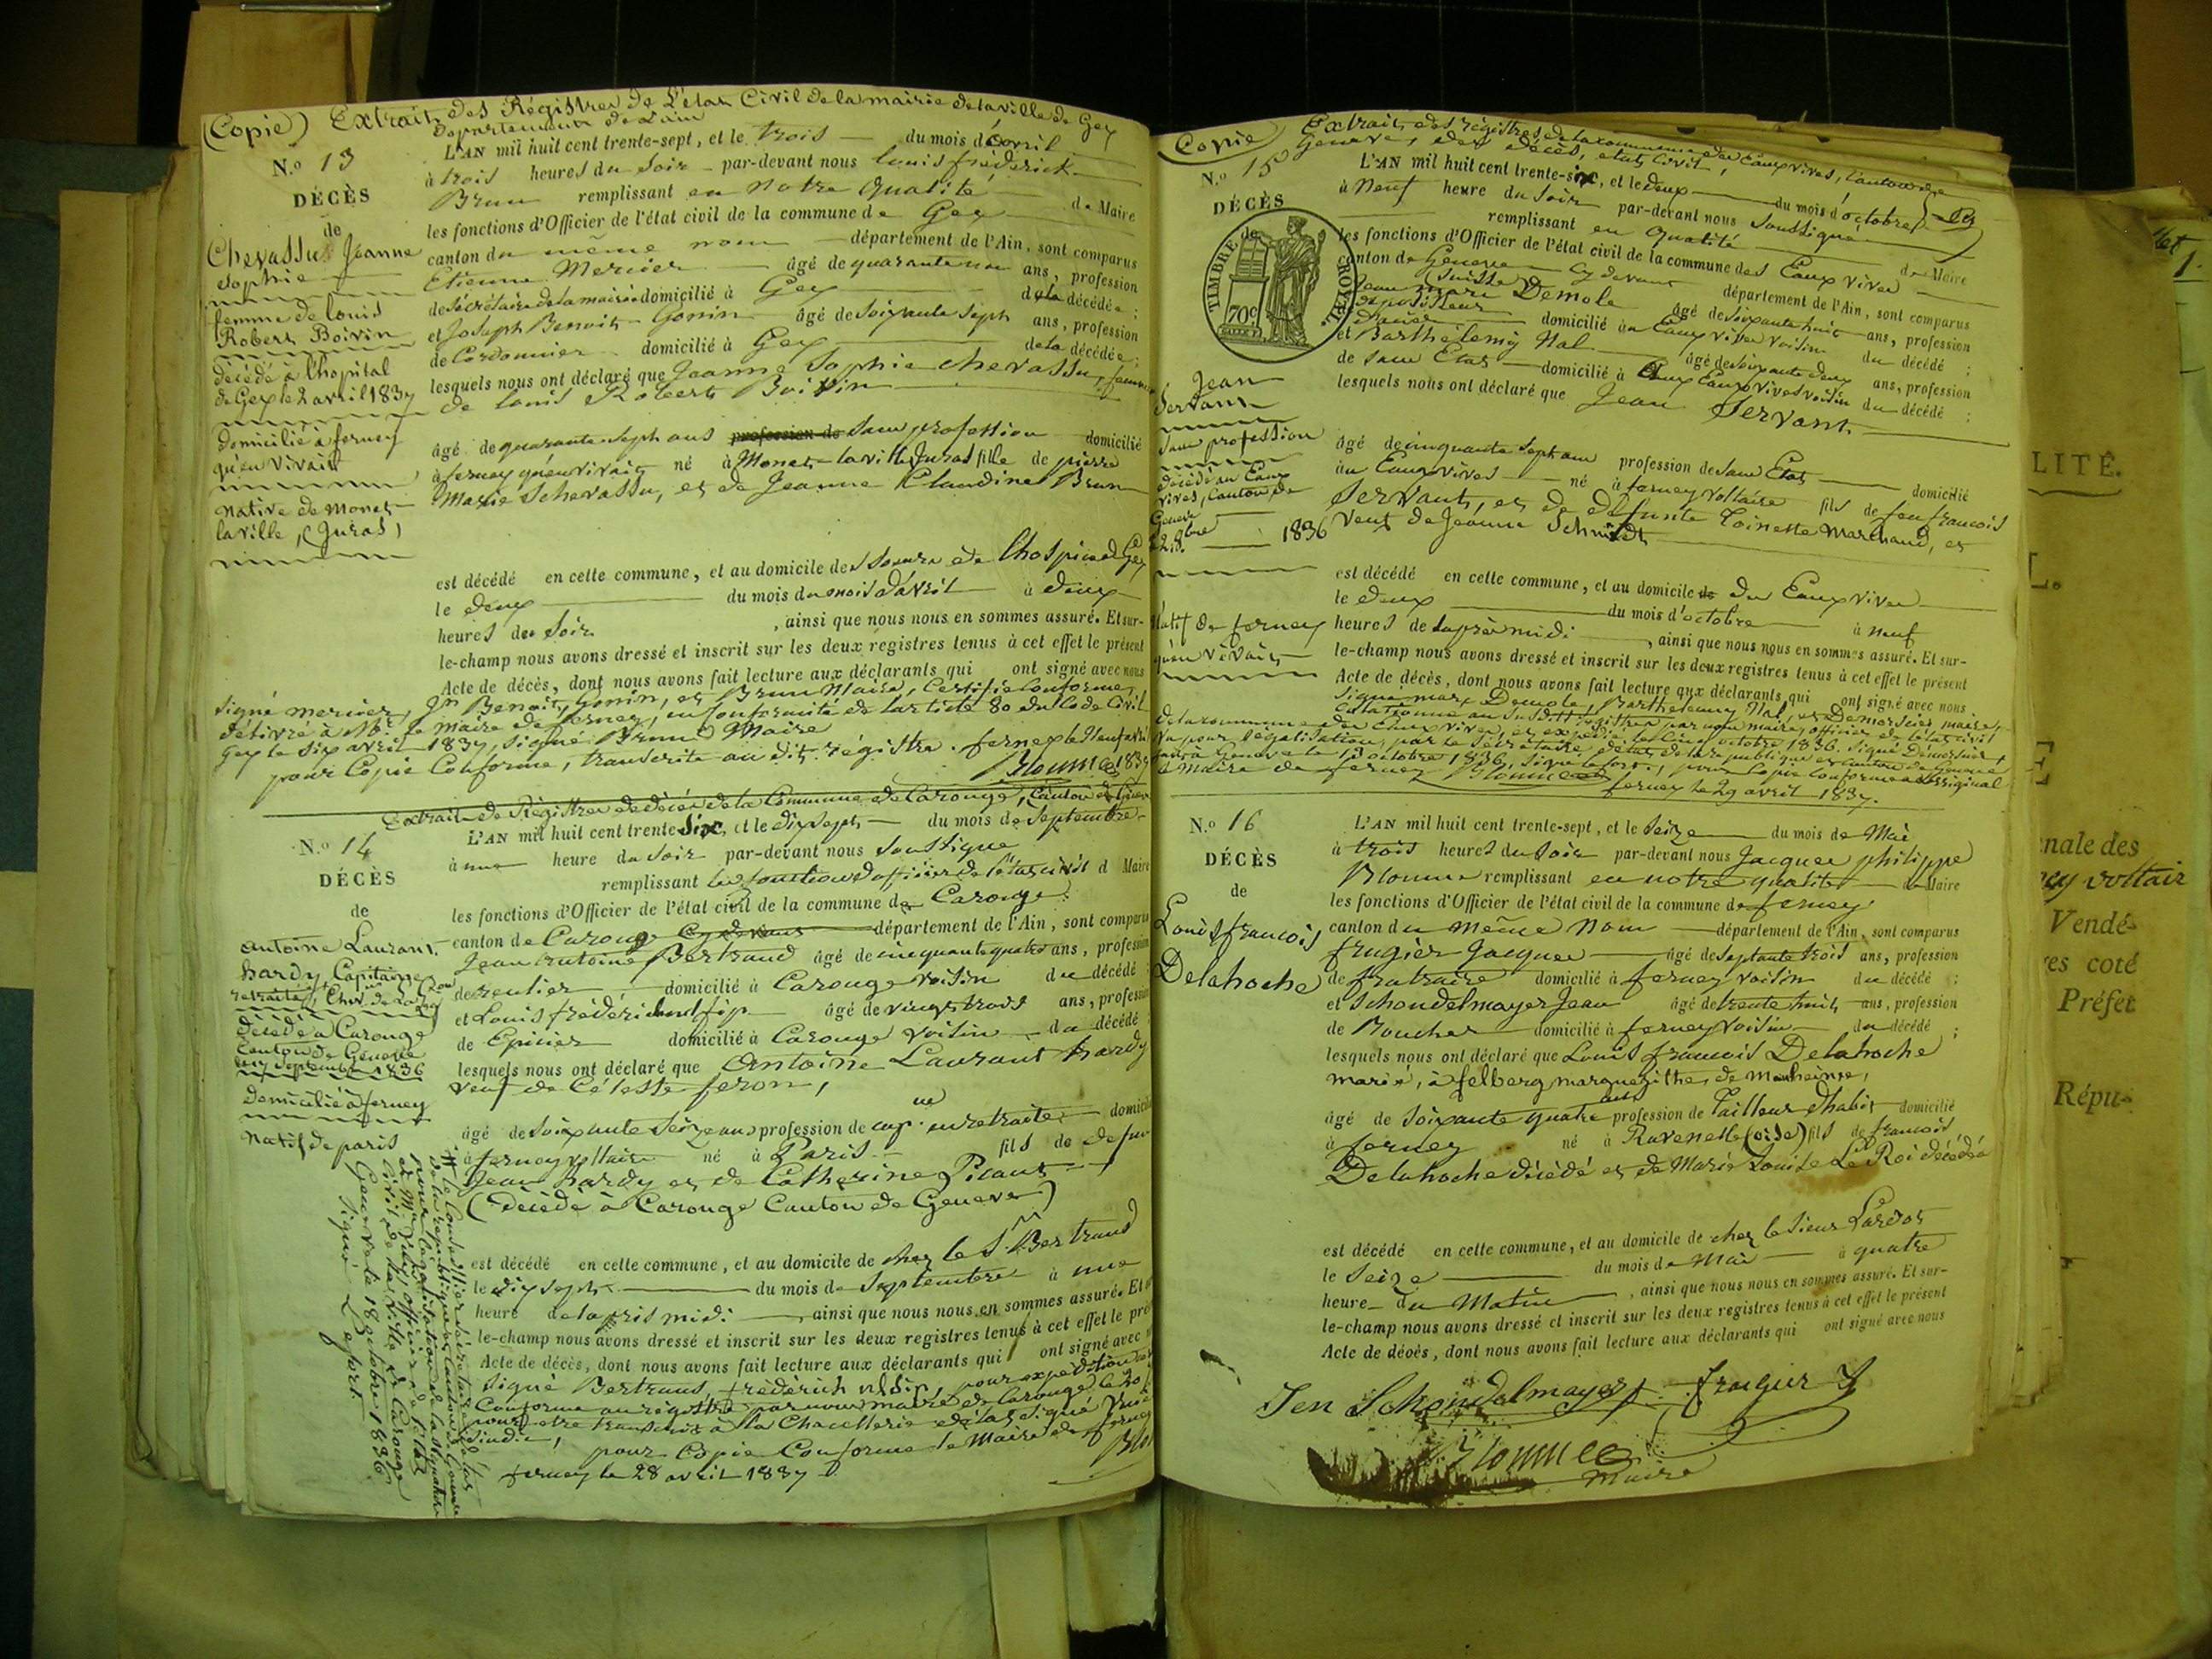 (Copie) Extrait des Régistres de L'état Civil de la mairie de la ville de Gex
département de L'ain
N.º 13
DÉCÈS
de
Chevassu Jeanne
Sophie
femme de Louis
Robert Boivin
décédé à l'hopital
de Gex le 2 avril 1837
domicilié à ferney
qu'en vivait
native de Monet-
laville, (Jura)
L'AN mil huit cent trente-sept, et le trois du mois d'avril
à trois heures du Soir par-devant nous louis frédérick
Brun remplissant en notre qualité de Maire
les fonctions d'Officier de l'état civil de la commune de Gex
canton du même nom département de l'Ain, sont comparus
Etienne Mercier âgé de quarante un ans, profession
de Sécrétaire de la mairie domicilié à Gex de la décédée;
et Joseph Benoit Gonin âgé de Soixante Sept ans, profession
de Cordonnier domicilié à Gex de la décédée;
lesquels nous ont déclaré que Jeanne Sophie chevassu, femme
de louis Robert Boivin
âgé de quarante Sept ans profession de Sans profession domicilié
à ferney qu'en vivait né à Monet-laville Jura fille de pierre
Marie Schevassu, et de Jeanne Claudine Brun
est décédé en cette commune, et au domicile des Soeurs de l'hospice de Gex
le deux du mois du mois d'avril à deux
heures du Soir, ainsi que nous nous en sommes assuré. Et sur-
le-champ nous avons dressé et inscrit sur les deux registres tenus à cet effet le présent
Acte de décès, dont nous avons fait lecture aux déclarants qui ont signé avec nous
Signé mercier, Jn Benoit Gonin, et Brun Maire, Certifié Conforme,
délivré à Mr. le maire de ferney, en conformité de l'article 80 du Code Civil
Gex le Six avril 1837, Signé Brun Maire
pour Copie Conforme, transcrite au dit régistre. ferney le Neuf avril
1837
Extrait des Régistres de décès de la Commune de Carouge, Canton de Genève
N.º 14
DÉCÈS
de
Antoine Laurant
hardy Capitaine
retraité, Chev.
décédé à Carouge
Canton de Genève
le 17 Septembre 1836
domicilié à ferney
natif de paris
L'AN mil huit cent trente Six, et le dix Sept du mois de Septembre
à une heure du Soir par-devant nous Soussigné
remplissant les fonctions d'officier de l'état civil d Maire
les fonctions d'Officier de l'état civil de la commune de Carouge
canton de Carouge Cy devant département de l'Ain, sont comparus
Jean Antoine Bertrand âgé de cinquante quatre ans, profession
de rentier domicilié à Carouge voisin du décédé
et Louis frédérich âgé de vingt trois ans, profession
de Epicier domicilié à Carouge voisin du décédé;
lesquels nous ont déclaré que Antoine Laurant hardy
veuf de Céleste feron,
âgé de Soixante Seize ans profession de cap.ne en retraite domicilié
à ferney voltaire né à Paris fils de défunt
Jean hardy et de Catherine Picaut
(décédé à Carouge Canton de Geneve)
est décédé en cette commune, et au domicile de chez le Sr. Bertrand
le dix sept du mois de Septembre à une
heure de l'apris midi, ainsi que nous nous en sommes assuré. Et
le-champ nous avons dressé et inscrit sur les deux registres tenus à cet effet le pré
Acte de décès, dont nous avons fait lecture aux déclarants qui ont signé avec
Signé Bertrand, frédérich pour expédition
Conforme au régistre par nous maire de Carouge le 20
pour être transmis à la Chancellerie d'état Signé
Sindic,
pour Copie Conforme le Maire de ferney
ferney le 28 avril 1837
le Conseiller Secrétaire d'état
de la république et Canton de Geneve
pour légalisation de la Signature
de Mr. officier de l'état
Civil de la Ville de Carouge
Geneve le 18 octobre 1836
Signé Lefort
Copie Extrait des régistres de la commune des Eaux vives, Canton de
Geneve, des décès, état Civil,
N.º 15
DÉCÈS
TIMBRE ROYAL
70c
Jean
Servant
Sans profession
décédé au Eaux
vives, Canton de
Geneve
le 2 8bre 1836
Natif de ferney
qu'en vivait
L'AN mil huit cent trente-six, et le deux du mois d'octobre
à Neuf heure du Soir par-devant nous Soussigné
remplissant en qualité de Maire
les fonctions d'Officier de l'état civil de la commune des Eaux vives
canton de Geneve Cy devant département de l'Ain, sont comparus
(Suisse
Jean marc Demole âgé de Soixante huit ans, profession
domicilié au Eaux vives voisin du décédé;
et Barthélemy Nal âgé de Soixante deux ans, profession
de Sans Etat domicilié à Eaux vives voisin du décédé;
lesquels nous ont déclaré que Jean Servant
âgé de cinquante Sept ans profession de Sans Etat domicilié
au Eaux vives né à ferney voltaire fils de feu françois
Servant, et de défunte Toinette Marchand, et
veuf de Jeanne Schmidt
est décédé en cette commune, et au domicile de des Eaux vives
le deux du mois d'octobre à neuf
heures de laprès midi, ainsi que nous nous en sommes assuré. Et sur-
le-champ nous avons dressé et inscrit sur les deux registres tenus à cet effet le présent
Acte de décès, dont nous avons fait lecture aux déclarants qui ont signé avec nous
Signé marc Demole, Barthelemy Nal, et Demorsier maire,
par nous maire, officier de l'état civil
de la commune des Eaux vives, et expédié le octobre 1836. Signé Demorsier,
vu pour légalisation, par le Sécrétaire d'état de la république et canton de Geneve
à Geneve le 13 octobre 1836, Signé Lefort, pour Copie Conforme à l'original
le Maire de ferney
ferney le 29 avril 1837.
N.º 16
DÉCÈS
de
Louis françois
Delahoche
L'AN mil huit cent trente-sept, et le Seize du mois de Mai
à trois heures du Soir par-devant nous Jacques philippe
remplissant en notre qualité de Maire
les fonctions d'Officier de l'état civil de la commune de ferney
canton du même Nom département de l'Ain, sont comparus
frugier Jacques âgé de Septante trois ans, profession
de domicilié à ferney voisin du décédé;
et Schondelmayer Jean âgé de trente huit ans, profession
de Boucher domicilié à ferney voisin du décédé;
lesquels nous ont déclaré que Louis françois Delahoche
marié, à felberg marguerithe, de Manheime,
âgé de Soixante quatre ans profession de Tailleur d'habit domicilié
à ferney né à Ravenelle (oise) fils de francois
Delahoche décédé et de Marie Louise Le Roi décédée
est décédé en cette commune, et au domicile de chez le Sieur Lardot
le Seize du mois de Mai à quatre
heure du Matin, ainsi que nous nous en sommes assuré. Et sur-
le-champ nous avons dressé et inscrit sur les deux registres tenus à cet effet le présent
Acte de décès, dont nous avons fait lecture aux déclarants qui ont signé avec nous
Jen Schondelmayer frugier J
Maire
LITÉ.
nale des
voltair
Vendé-
res coté
Préfet
Répu-